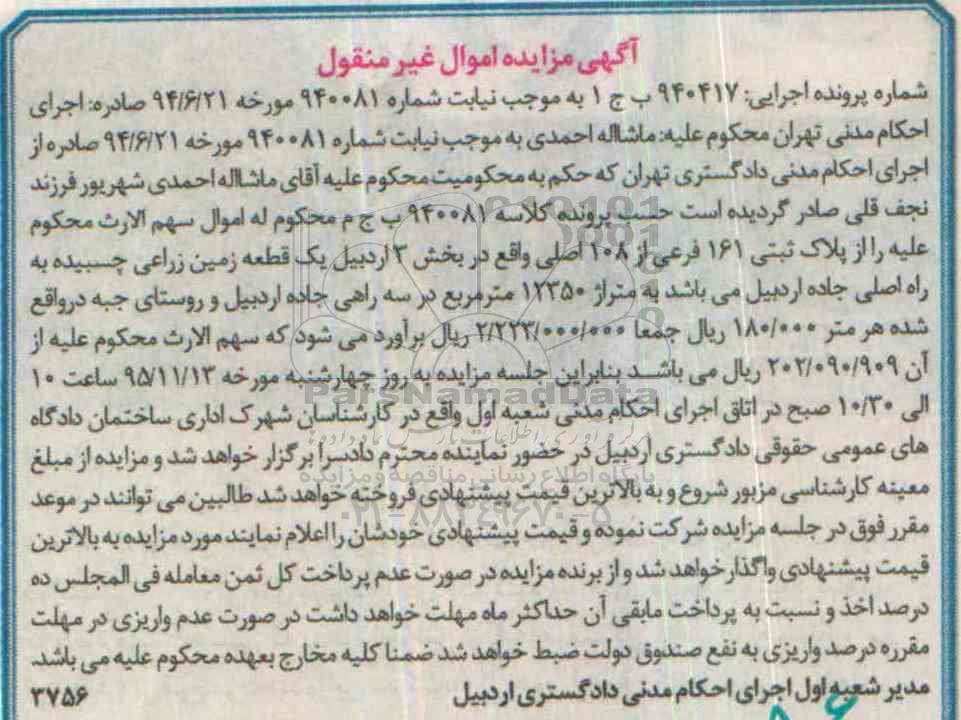 آگهی مزایده اموال غیر منقول
شماره پرونده اجرایی: ۹۴۰۴۱۷ ب ج ۱ به موجب نیابت شماره ۹۴۰۰۸۱ مورخه ۹۴/۶/۲۱ صادره: اجرای
احکام مدنی تهران محکوم علیه: ماشااله احمدی به موجب نیابت شماره ۹۴۰۰۸۱ مورخه ۹۴/۶/۲۱ صادره از
اجرای احکام مدنی دادگستری تهران که حکم به محکومیت محکوم علیه آقای ماشااله احمدی شهریور فرزند
نجف قلی صادر گردیده است حسب پرونده کلاسه ۹۴۰۰۸۱ ب ج م محکوم له اموال سهم الارث محکوم
علیه را از پلاک ثبتی ۱۶۱ فرعی از ۱۰۸ اصلی واقع در بخش ۳ اردبیل یک قطعه زمین زراعی چسبیده به
راه اصلی جاده اردبیل می باشد به متراژ ۱۲۳۵۰ مترمربع در سه راهی جاده اردبیل و روستای جبه درواقع
شده هر متر ۱۸۰/۰۰۰ ریال جمعا ۲/۲۲۳/۰۰۰/۰۰۰ ریال برآورد می شود که سهم الارث محکوم علیه از
آن ۲۰۲/۰۹۰/۹۰۹ ریال می باشد بنابراین جلسه مزایده به روز چهارشنبه مورخه ۹۵/۱۱/۱۳ ساعت ۱۰
الی ۱۰/۳۰ صبح در اتاق اجرای احکام مدنی شعبه اول واقع در کارشناسان شهرک اداری ساختمان دادگاه
های عمومی حقوقی دادگستری اردبیل در حضور نماینده محترم دادسرا برگزار خواهد شد و مزایده از مبلغ
معینه کارشناسی مزبور شروع و به بالاترین قیمت پیشنهادی فروخته خواهد شد طالبین می توانند در موعد
مقرر فوق در جلسه مزایده شرکت نموده و قیمت پیشنهادی خودشان را اعلام نمایند مورد مزایده به بالاترین
قیمت پیشنهادی واگذار خواهد شد و از برنده مزایده در صورت عدم پرداخت کل ثمن معامله فی المجلس ده
درصد اخذ و نسبت به پرداخت مابقی آن حداکثر ماه مهلت خواهد داشت در صورت عدم واریزی در مهلت
مقرره درصد واریزی به نفع صندوق دولت ضبط خواهد شد ضمنا کلیه مخارج بعهده محکوم علیه می باشد.
مدیر شعبه اول اجرای احکام مدنی دادگستری اردبیل ۳۷۵۶
ParsNamadData
پایگاه اطلاع رسانی مناقصه و مزایده
۰۲۱-۸۸۳۴۹۶۷۰-۵